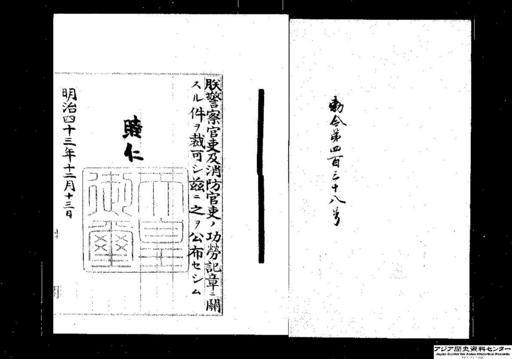 勅令第四百三十八号
朕警察官吏及消防官吏ノ功労記章ニ関
スル件ヲ裁可シ茲ニ之ヲ公布セシム
睦仁
天皇
御璽
明治四十三年十二月十三日
アジア歴史資料センター
Japan Center for Asian Historical Records